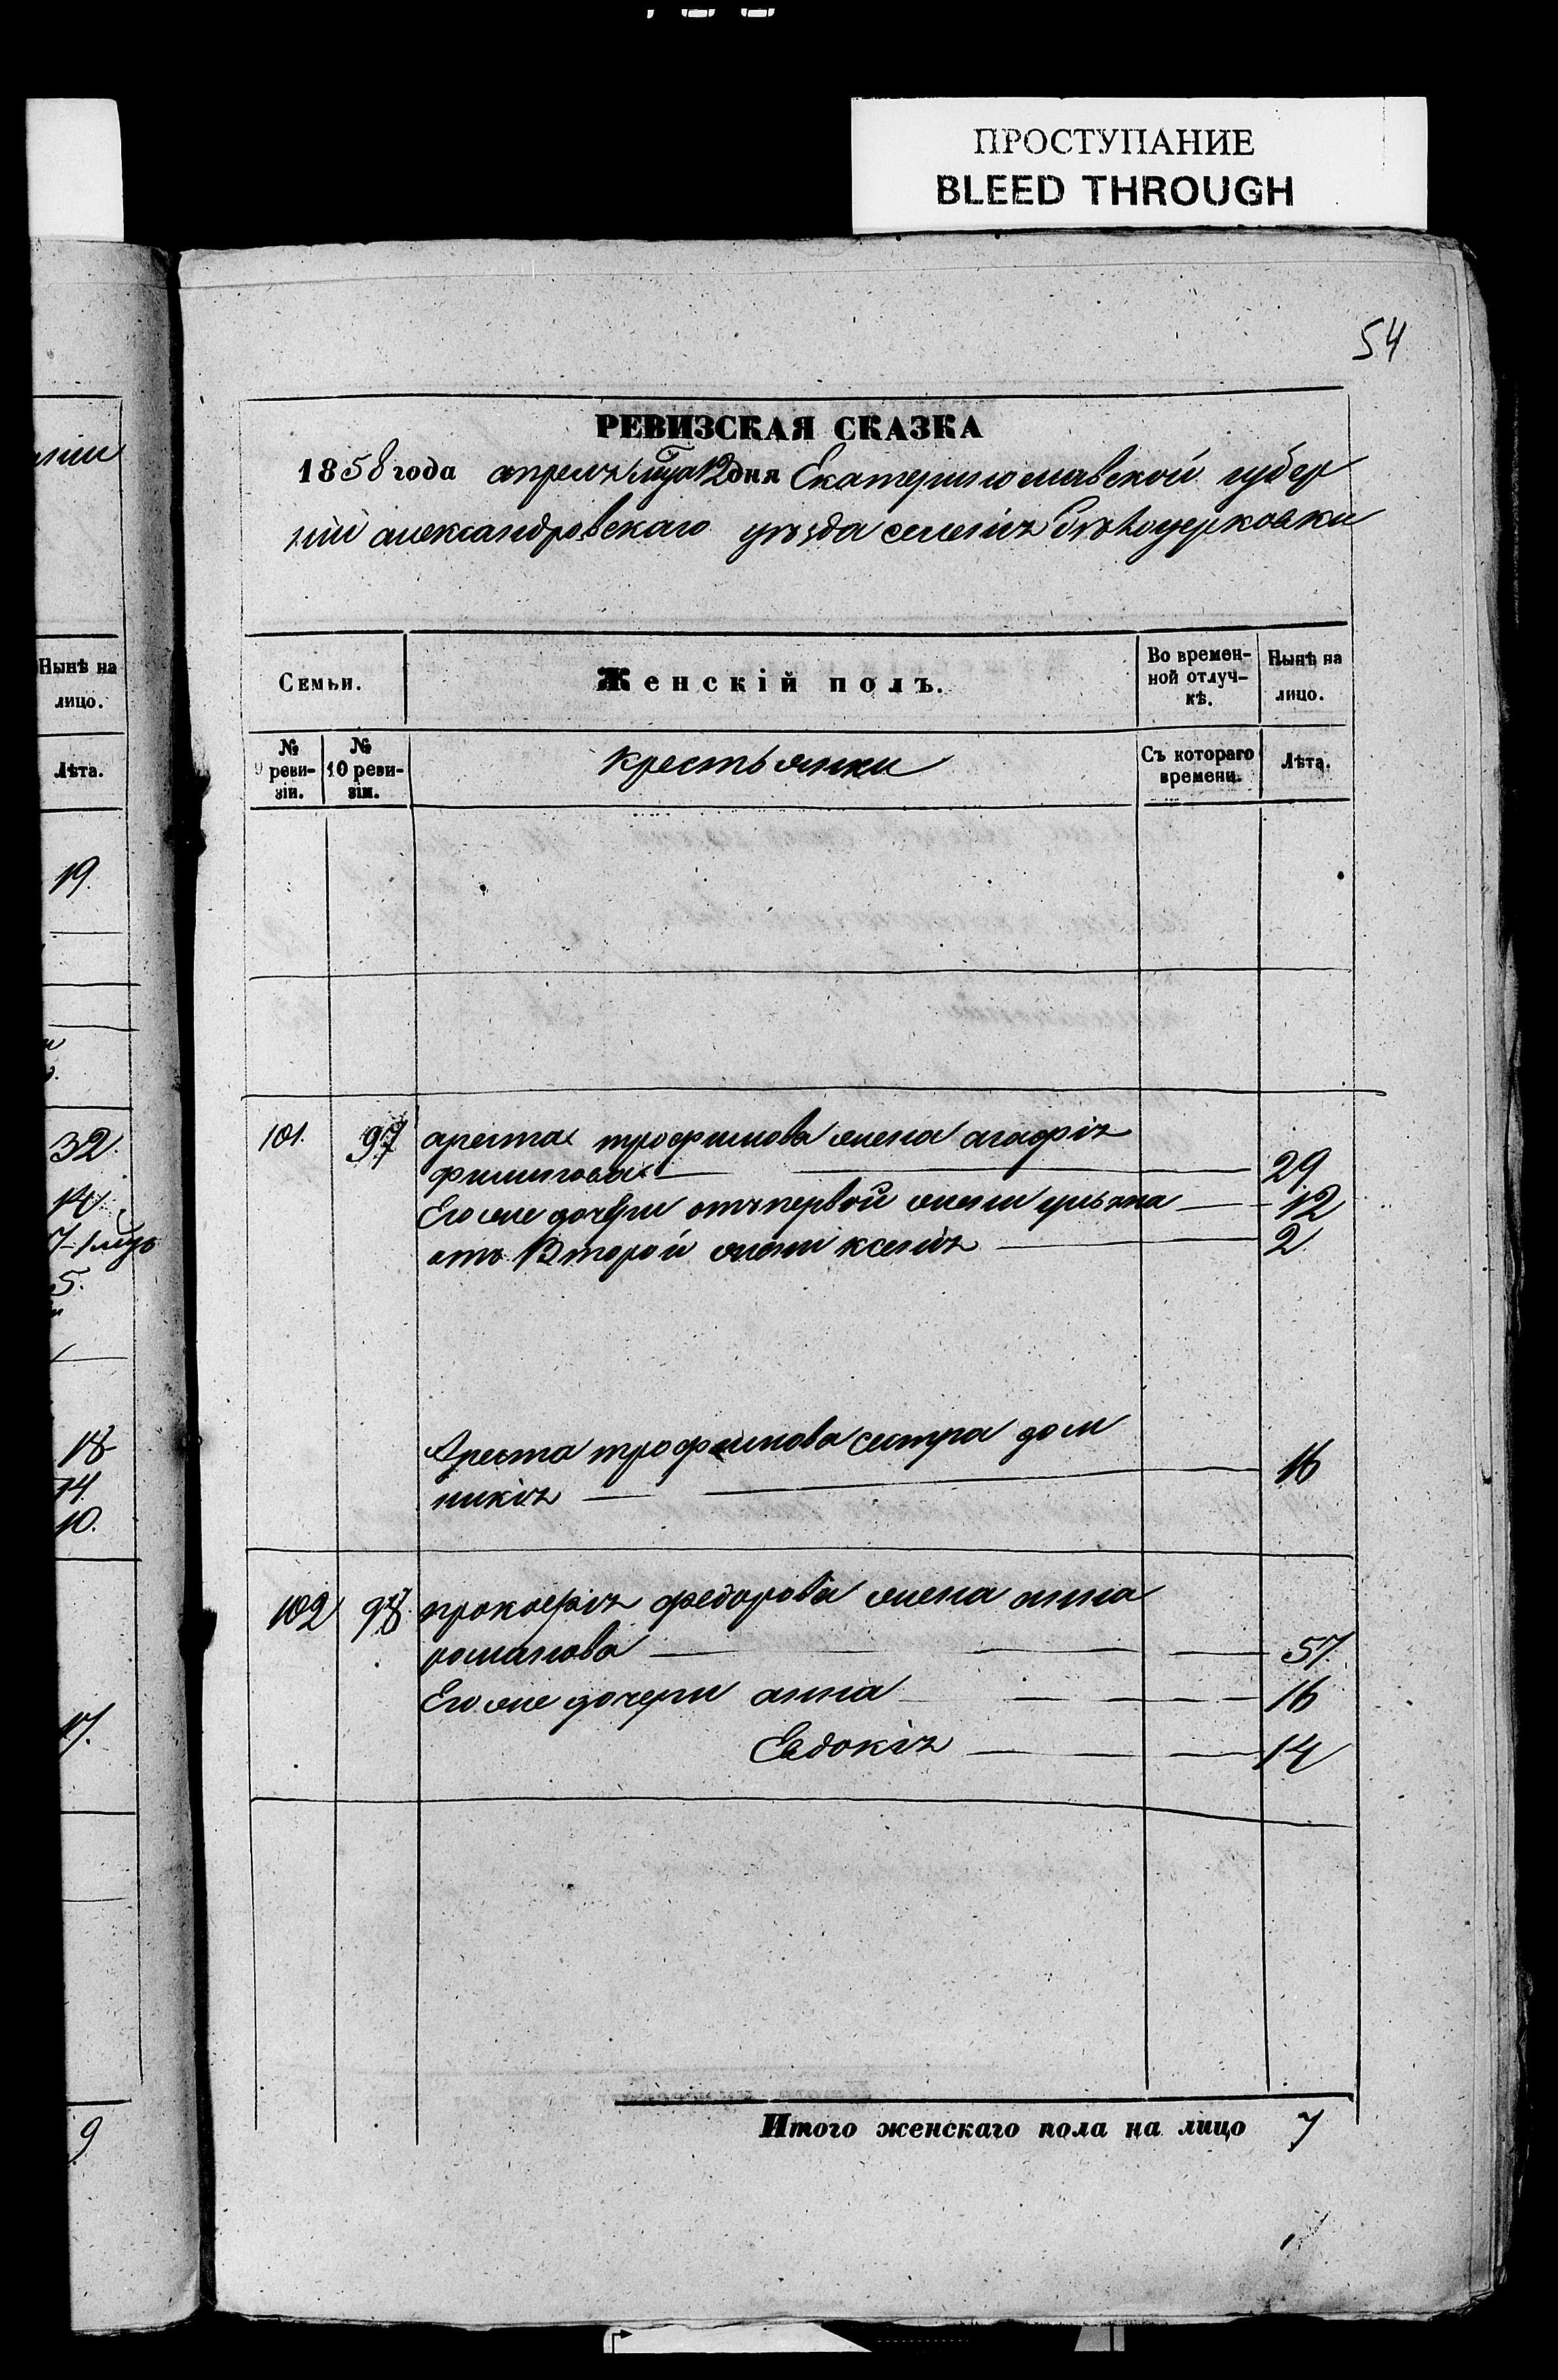 ПРОСТУПАНИЕ
BLEED THROUGH
54
РЕВИЗСКАЯ СКАЗКА
1858 года апреля мца 12 дня Екатеринославской губер
нии александровскаго уѣзда селенія бѣлоцерковки
Семьи.
Женскій полъ.
Во времен-
ной отлуч-
кѣ.
Нынѣ на
лицо.
№
9 реви-
зіи.
№
10 реви-
зіи.
крестьянки
Съ котораго
времени.
Лѣта.
101. 97 ареста трофимова жена агафія
филипова 29
Его же дочери отъ первой жени ульяна 12
отъ Второй жени ксенія 2
Ареста трофимова сестра дом
никія 16
102 98 прокофія федорова жена анна
романова 57
Его же дочери анна 16
Евдокія 14
Итого женскаго пола на лицо 7
Нынѣ на
лицо.
Лѣта.
19.
32.
14.
5.
18
14.
10.
17.
9